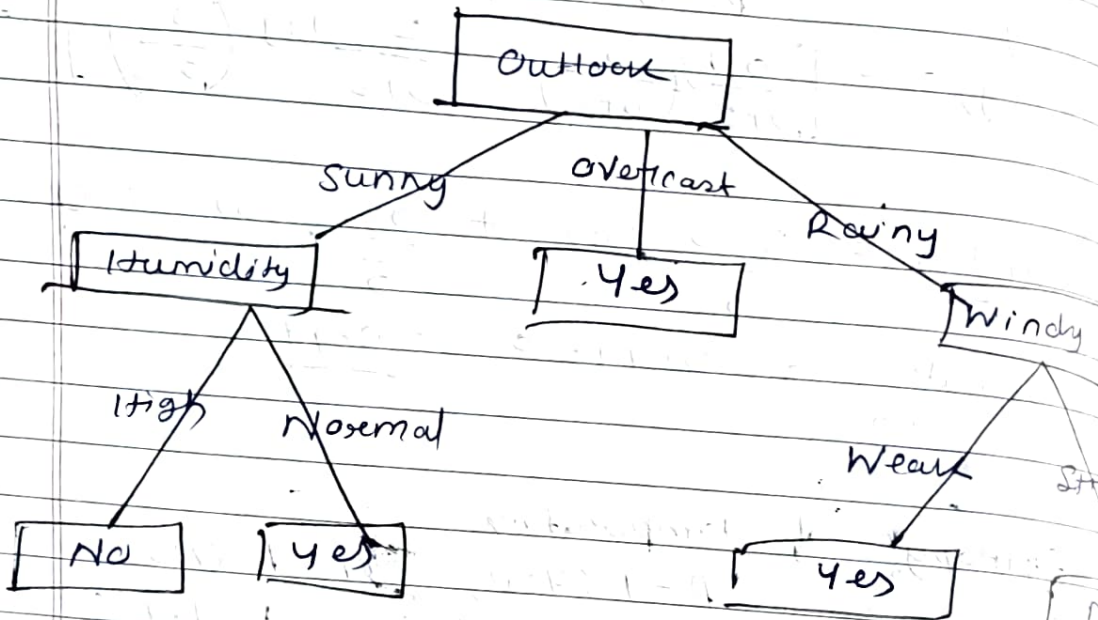 Outlook
Sunny
Overcast
Rainy
Humidity
Yes
Windy
High
Normal
Weak
No
Yes
Yes